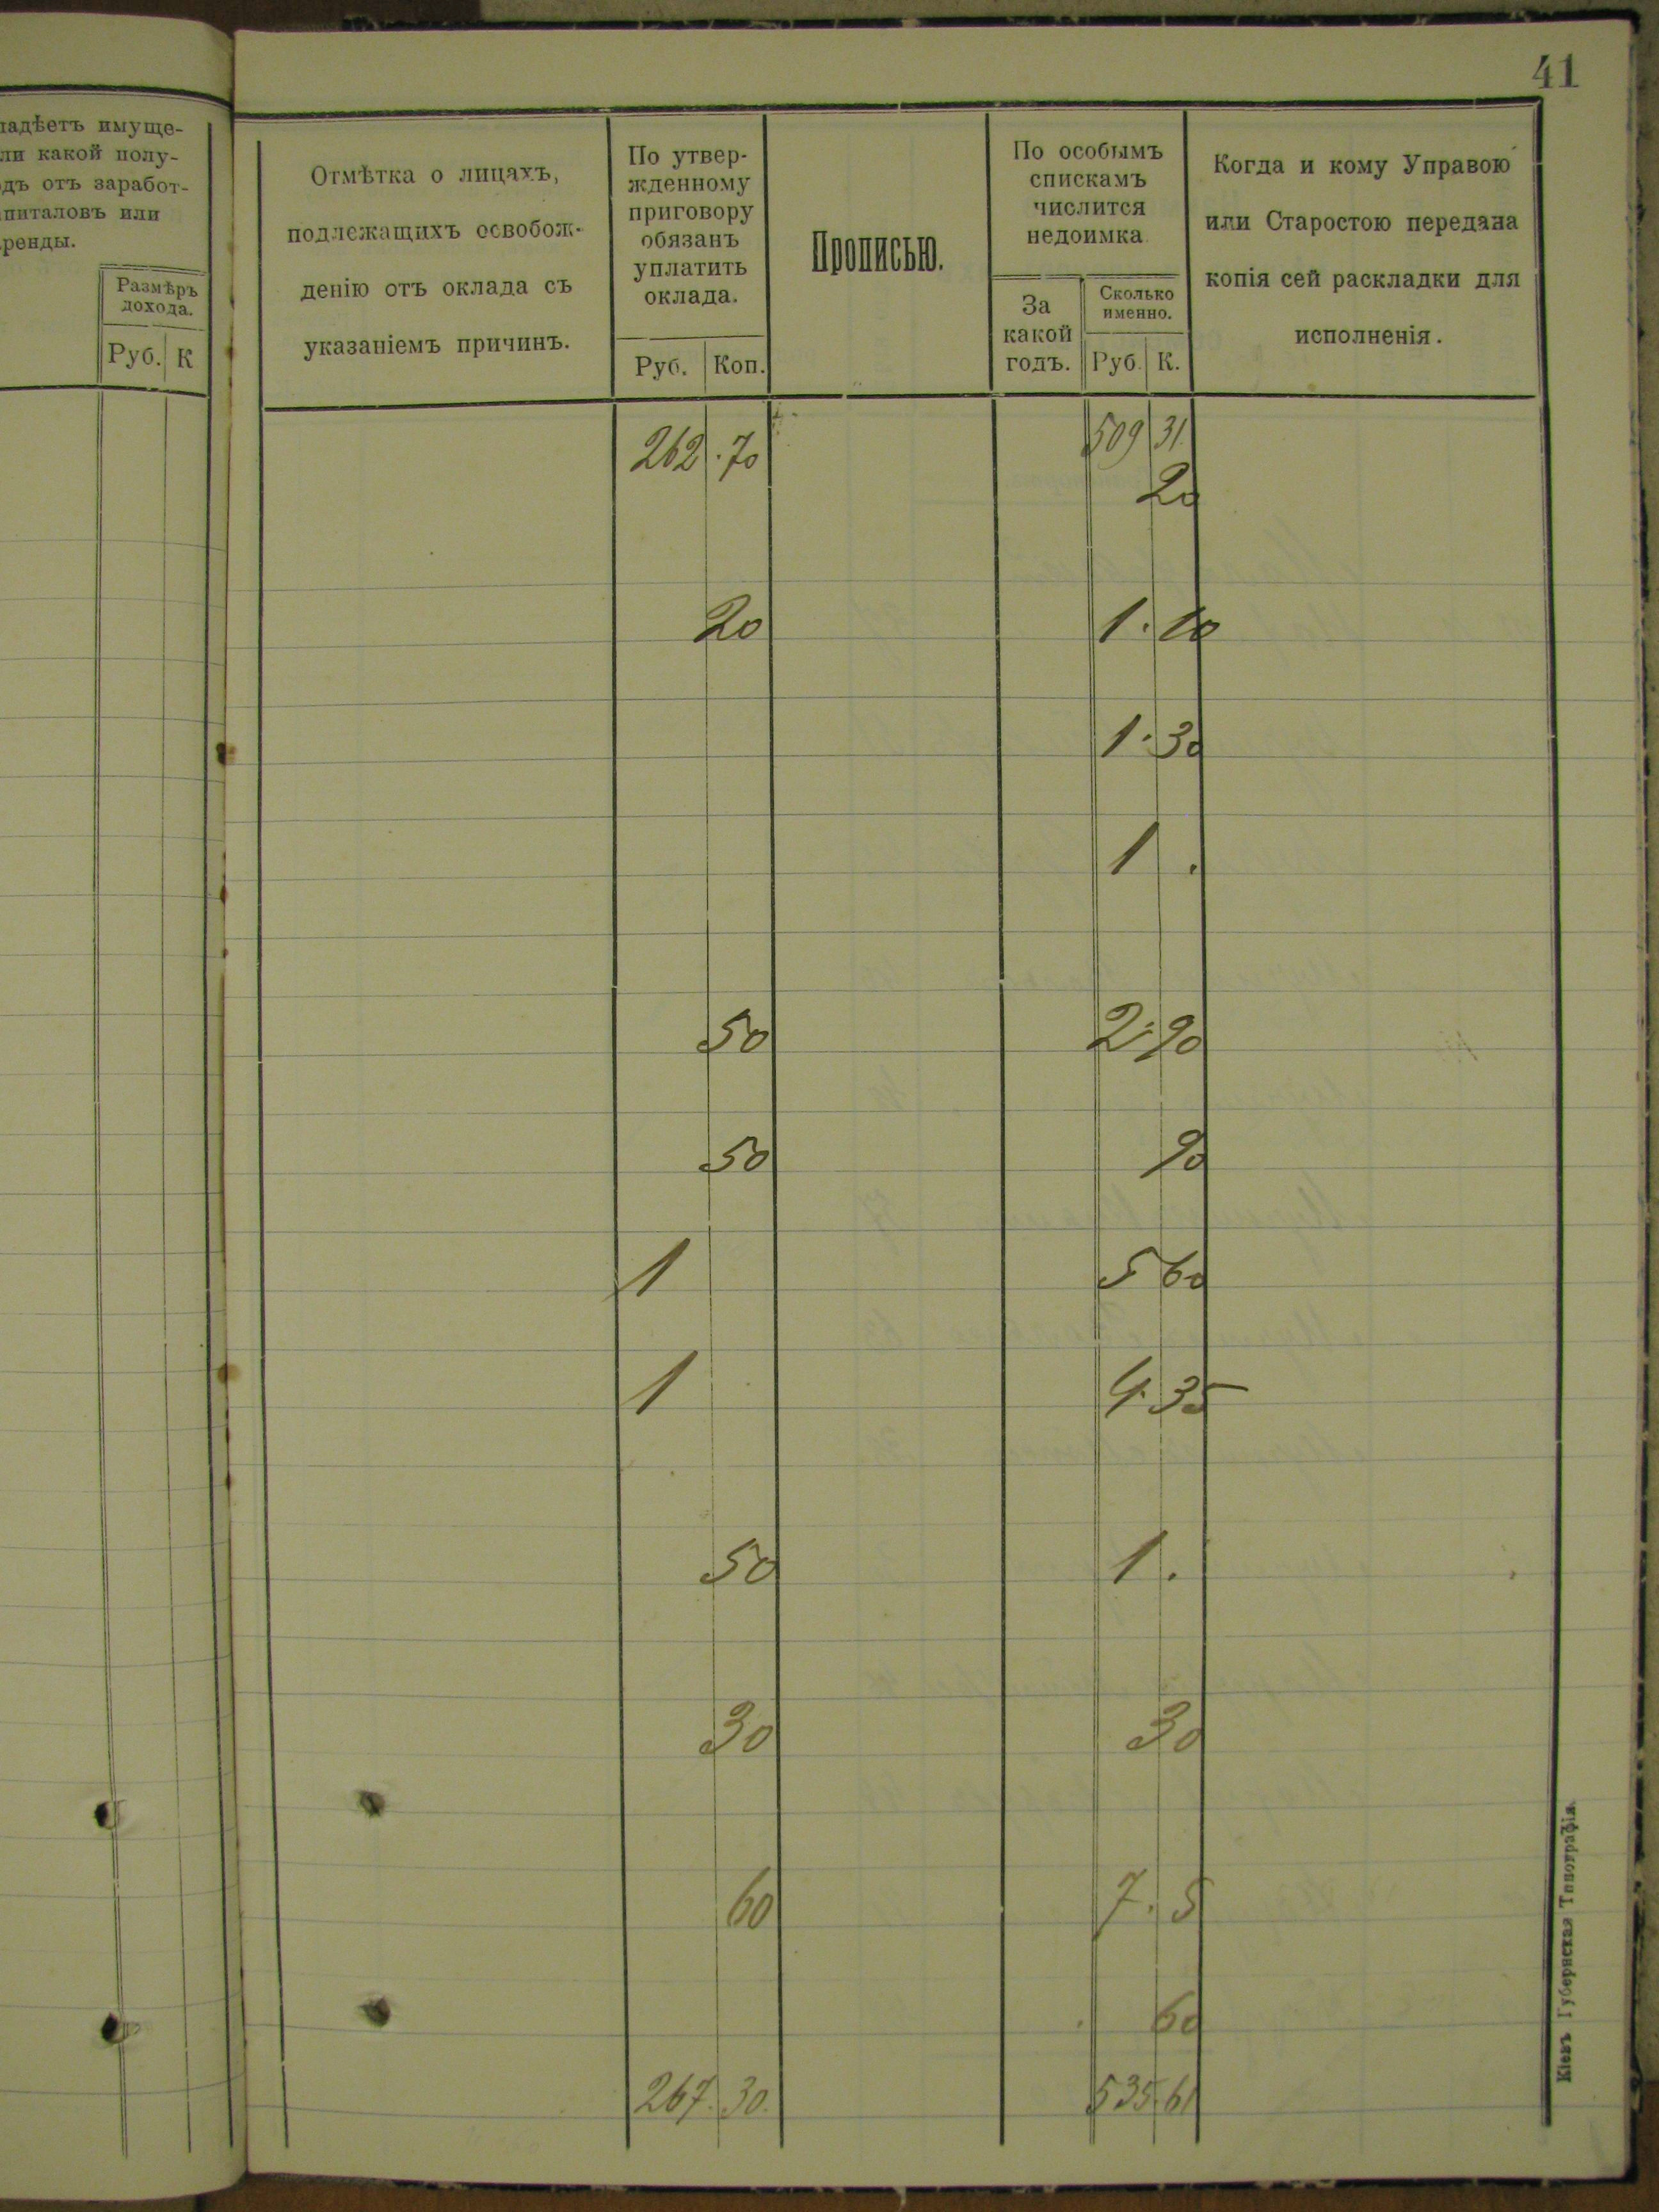 41
ладѣетъ имуще-
ли какой полу-
одъ отъ заработ-
питаловъ или
ренды.
Размѣръ
дохода.
Руб. К
Отмѣтка о лицахъ,
подлежащихъ освобож-
денію отъ оклада съ
указаніемъ причинъ.
По утвер-
жденному
приговору
обязанъ
уплатить
оклада.
Руб. Коп.
Прописью.
По особымъ
спискамъ
числится
недоимка.
За
какой
годъ.
Сколько
именно.
Руб. К.
Когда и кому Управою
или Старостою передана
копія сей раскладки для
исполненія.
262.70 509 31
20
20 1.10
1.30
1 .
50 2.90
50 90
1 5 60
1 4.35
50 1.
30 30
60 7.5
60
267.30. 535.61
Кіевъ Губернская Типографія.